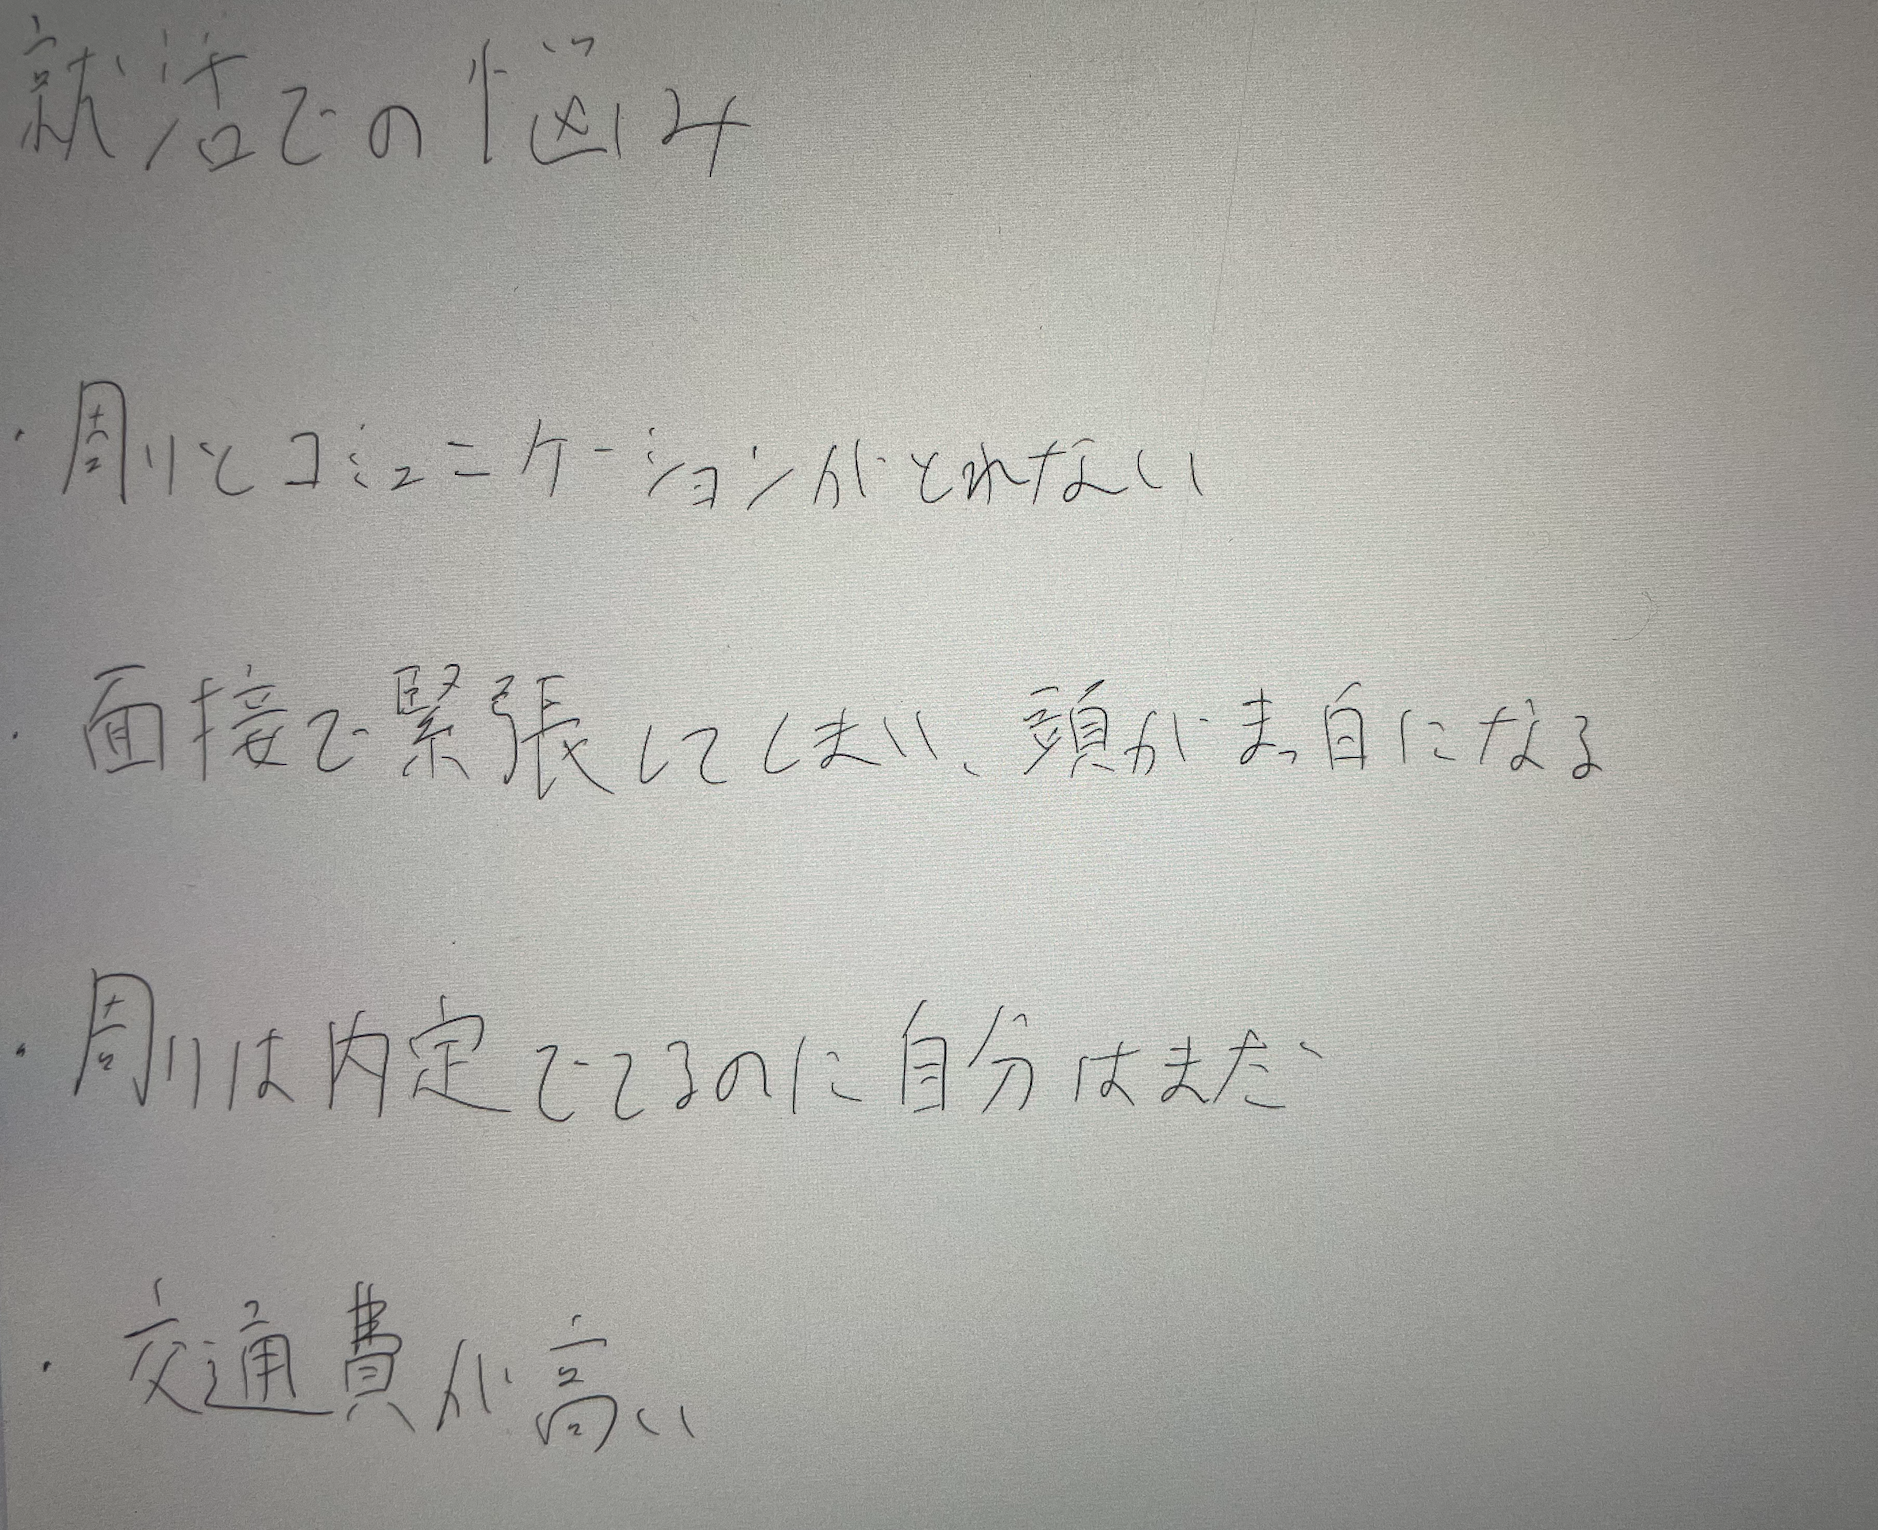 就活での悩み
・周りとコミュニケーションがとれない
・面接で緊張してしまい、頭がまっ白になる
・周りは内定でてるのに自分はまだ
・交通費が高い